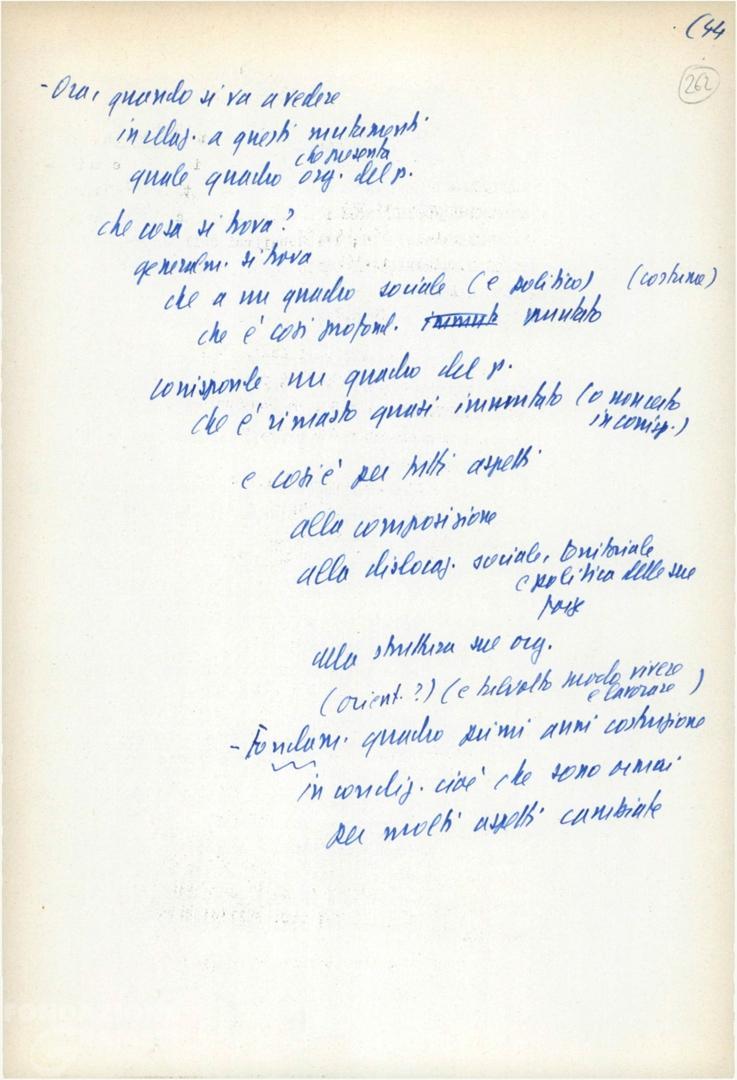 (44
262
- Ora, quando si va a vedere
in relaz. a questi mutamenti
che presenta
quale quadro org. del p.
che cosa si trova?
generalm. si trova
che a un quadro sociale (e politico) (costume)
che è così profond. immut mutato
corrisponde un quadro del p.
che è rimasto quasi immutato (o non certo
in corrisp.)
e così è per tutti aspetti
alla composizione
alla dislocaz. sociale, territoriale
e politica delle sue
forze
alla struttura sue org.
(orient.?) (e talvolta modo vivere
e lavorare)
- Fondam. quadro primi anni costruzione
in condiz. cioè che sono ormai
per molti aspetti cambiate
FONDAZIONE